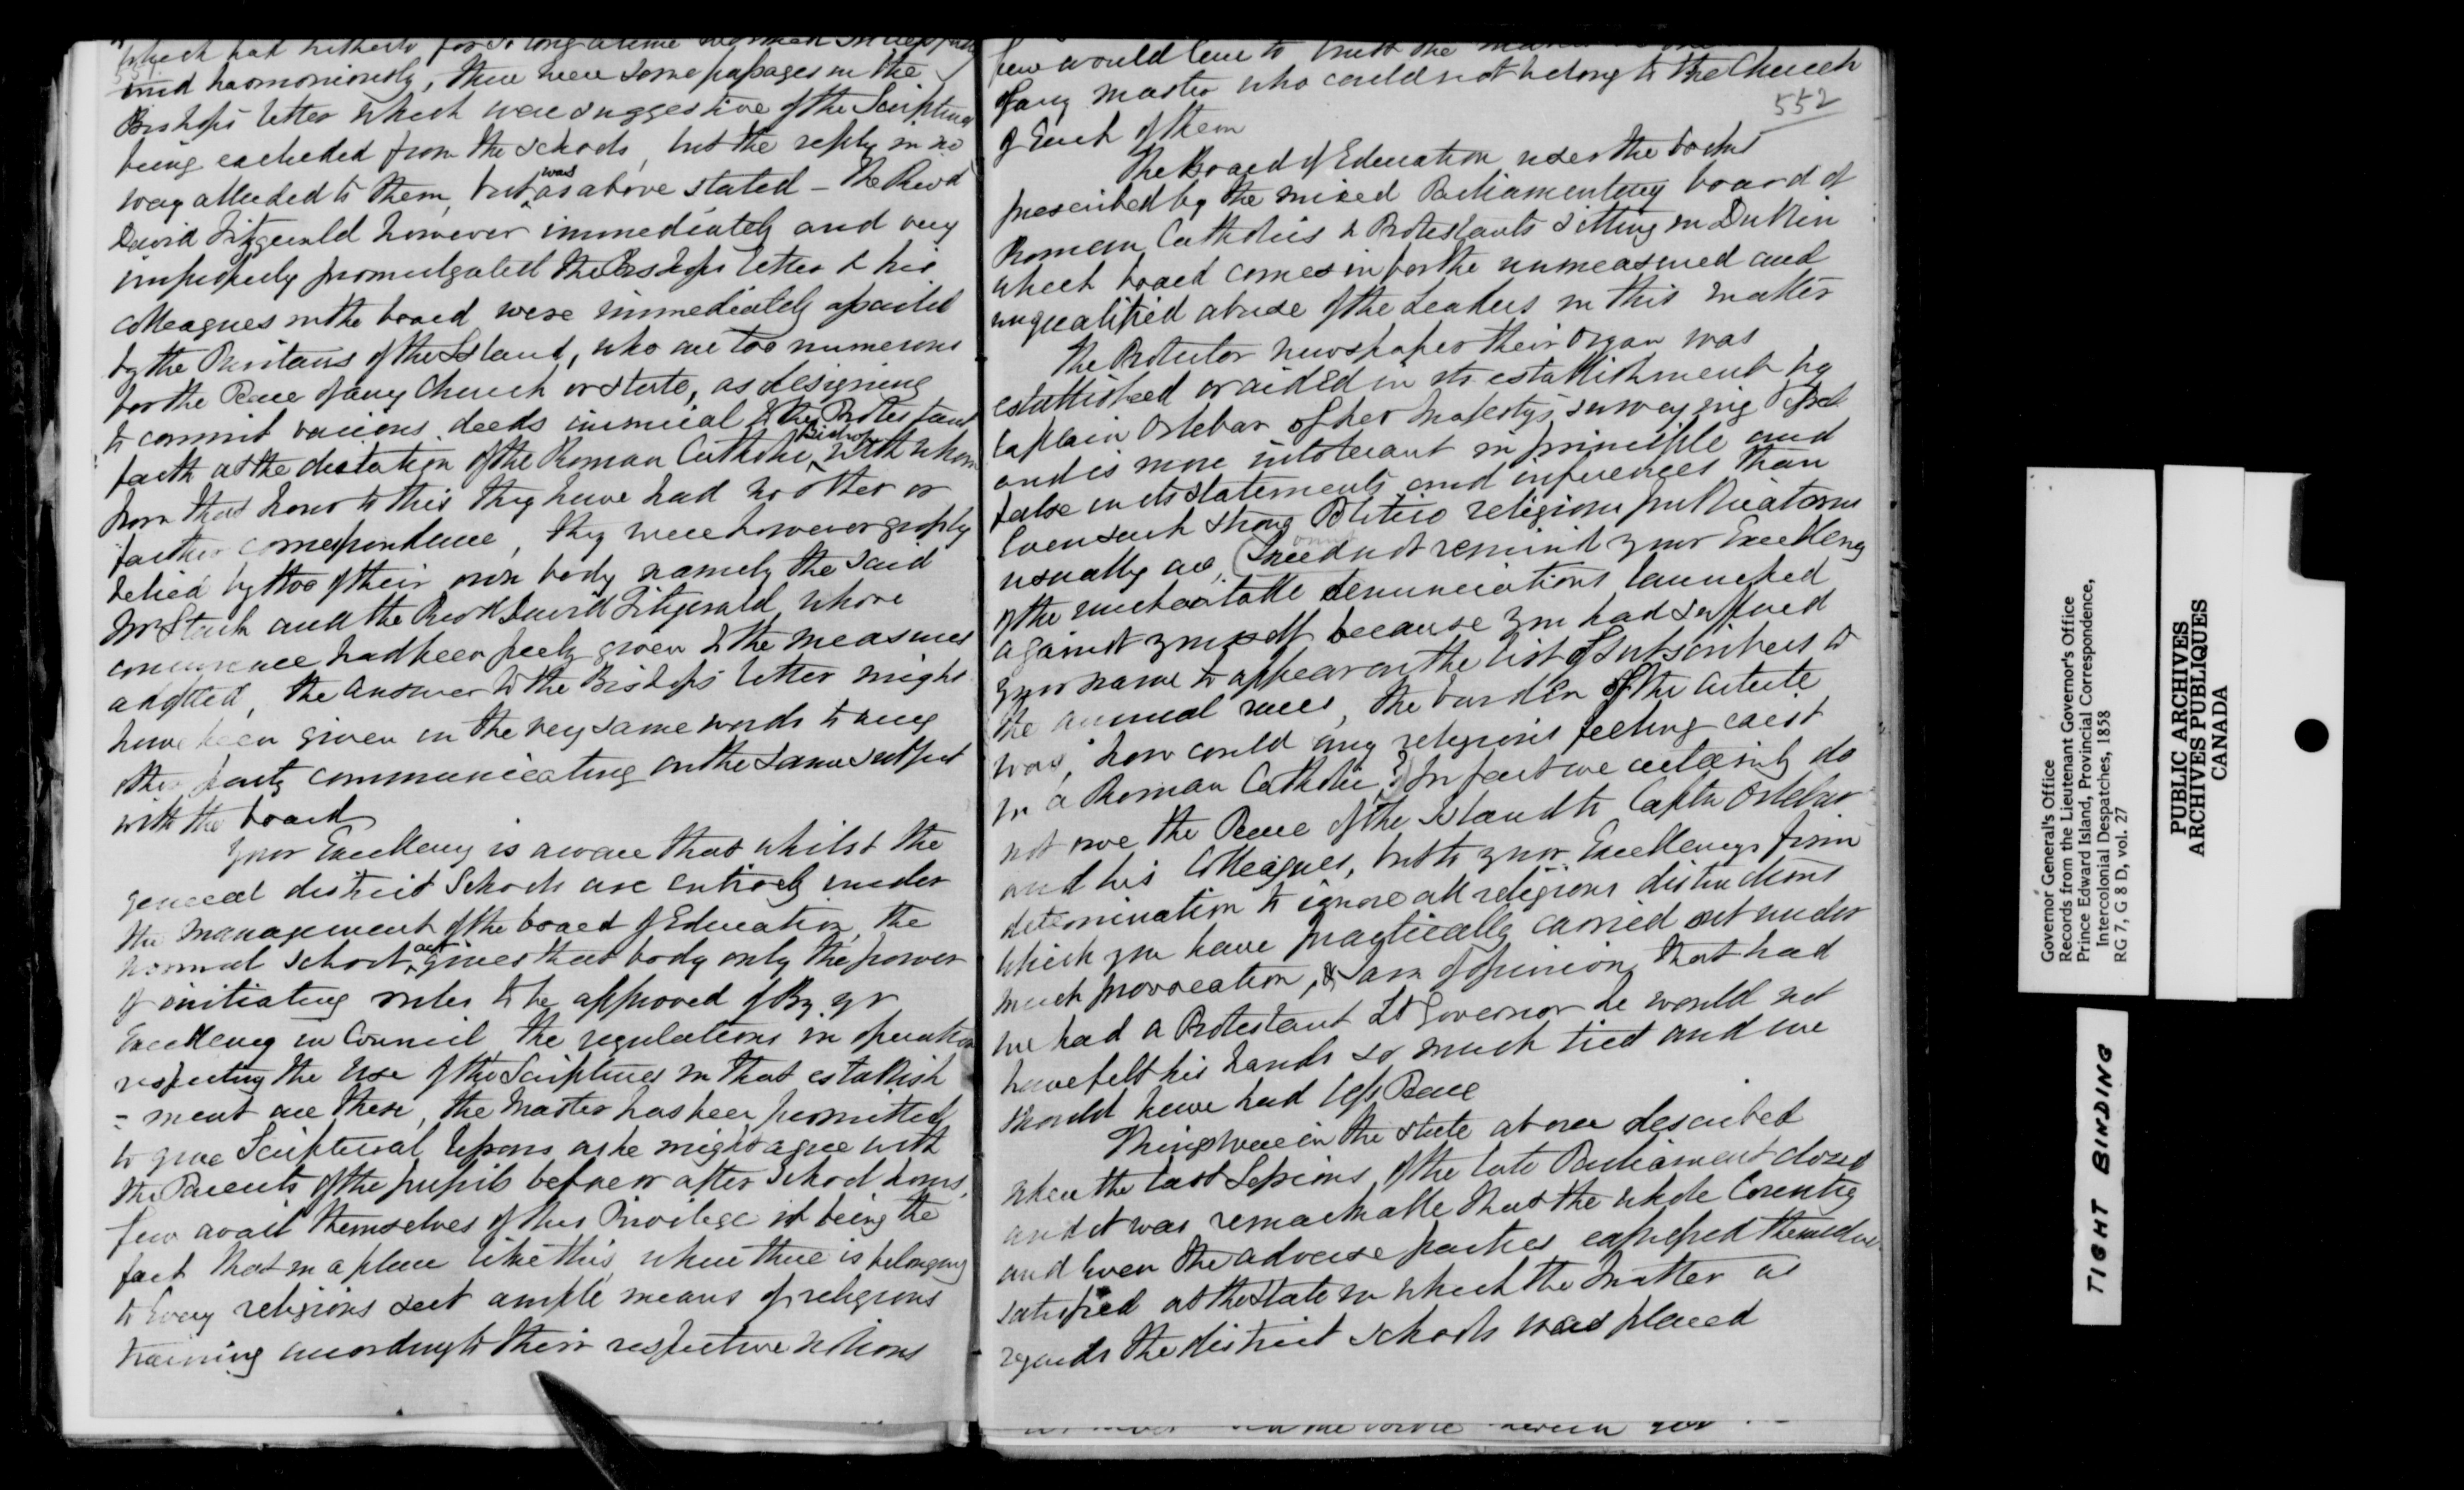 which had hitherto for so long a time worked
and harmoniously, there were some passages in the
Bishops letter which were suggestive of the Scriptures
being excluded from the schools, but the reply in no
way alluded to them, but was as above stated - The Revd
David Fitzgerald however immediately and very
improperly promulgated the Bishops letter & his
colleagues in the board were immediately assailed
by the Puritans of the Island, who are too numerous
for the Peace of any Church or state, as designing
to commit various deeds inimical to the Protestant
faith at the dictation of the Roman Catholic Bishop with whom
from that hour to this they have had no other or
further correspondence, they were however grossly
belied by two of their own body namely the said
Mr Stark and the Revd David Fitzgerald, whose
concurrence had been freely given to the measures
adopted, the answer to the Bishops letter might
have been given in the very same words to any
other party communicating on the same subject
with the board
Your Excellency is aware that whilst the
general district Schools are entirely under
the management of the board of Education, the
normal school act gives that body only the power
of initiating rules to be approved of By yr
Excellency in Council the regulations in operation
respecting the Use of the Scriptures in that establish
- ment are these, the Master has been permitted
to give Scriptural lessons as he might agree with
the Parents of the pupils before or after School hours,
few avail themselves of this Privilege it being the
fact that in a place like this, where there is belonging
to Every religious sect ample means of religious
training according to their respective notions
few would care to trust the
of any master who could not belong to the Church
of Each of them
552
The Board of Education uses the books
prescribed by the mixed Parliamentary board of
Roman Catholics & Protestants sitting in Dublin
which board comes in for the unmeasured and
unqualified abuse of the Leaders in this matter
The Protector newspaper their Organ was
established or aided in its establishment by
Captain Orlebar of her Majesty's surveying Vessel
and is more intolerant in principle and
false in its statements and inferences than
Even such strong Politico religious publications
usually are, (I need not remind your Excellency
of the uncharitable denunciations launched
against yourself because you had suffered
your name to appear on the list of Subscribers to
the annual races, the burden of the article
was, how could any religious feeling exist
in a Roman Catholic?) In fact we certainly do
not owe the Peace of the Island to Captn Orlebar
and his Colleagues, but to your Excellencys firm
determination to ignore all religious distinctions
which you have practically carried out under
much provocation, & I am of opinion, that had
we had a Protestant Lt Governor he would not
have felt his hands so much tied and we
should have had less Peace
Things were in the state above described
when the last Sessions of the late Parliament closed
and it was remarkable that the whole Country
and Even the adverse parties expressed themselves
satisfied at the State in which the Matter as
regards the district schools was placed
Governor General's Office
Records from the Lieutenant Governor's Office
Prince Edward Island, Provincial Correspondence,
Intercolonial Despatches, 1858
RG 7, G 8 D, vol. 27
PUBLIC ARCHIVES
ARCHIVES PUBLIQUES
CANADA
TIGHT BINDING